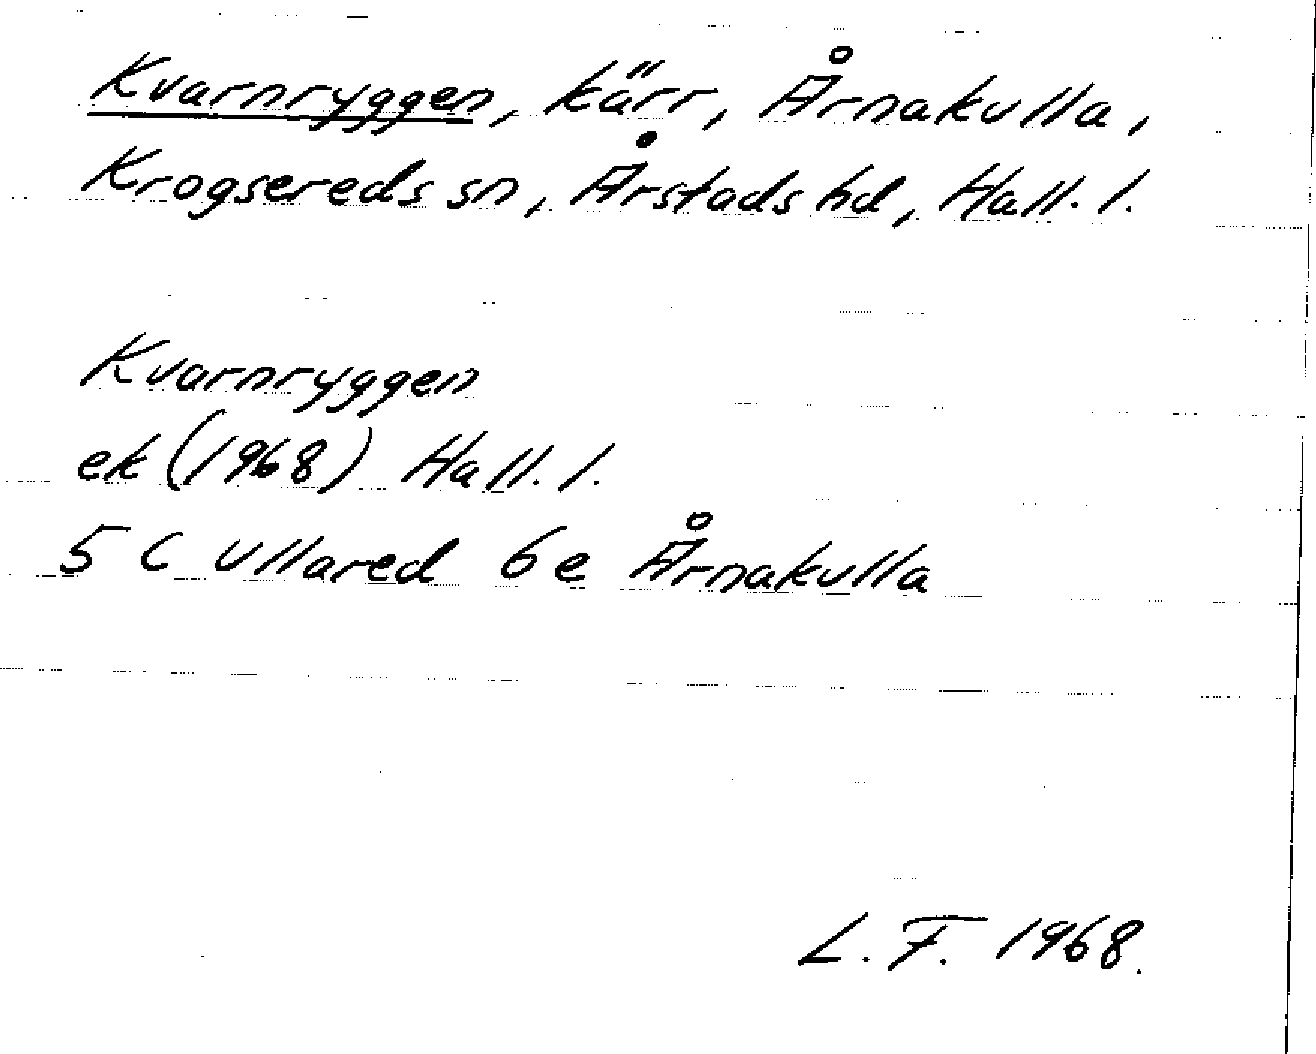 Kvarnryggen, kärr, Årnakulla,
Krogsereds sn, Årstads hd, Hall. l.
Kvarnryggen
ek (1968) Hall. l.
5 C Ullared 6e Årnakulla
L. F. 1968.